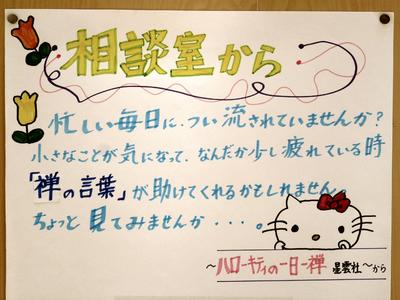 相談室から
忙しい毎日に、つい流されていませんか?
小さなことが気になって、なんだか少し疲れている時
「禅の言葉」が助けてくれるかもしれません。
ちょっと見てみませんか・・・。
〜ハローキティの一日一禅 星雲社〜から